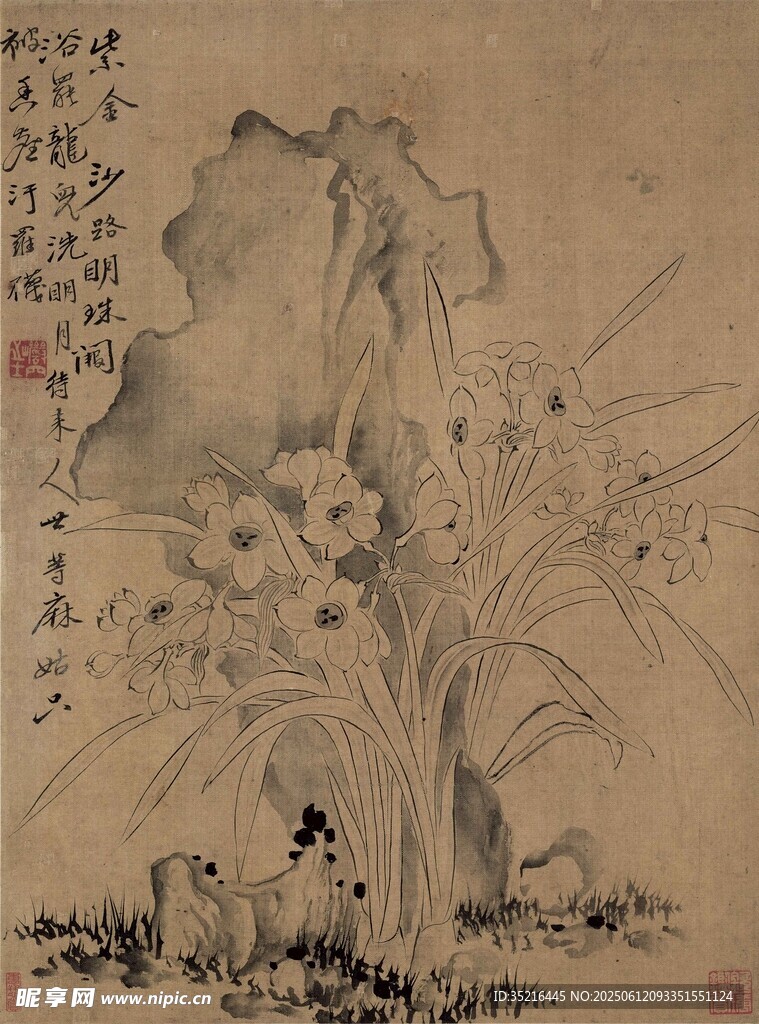 紫金沙路明珠闕
浴罷龍兒洗明月待来人世等麻姑只
被香塵汙羅襪
昵享网 www.nipic.cn
ID:35216445 NO:20250612093351551124